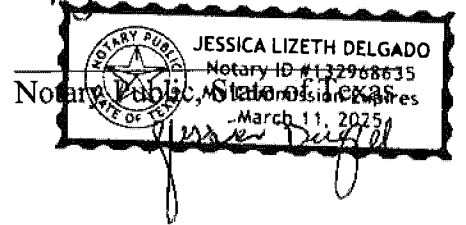 NOTARY PUBLIC
STATE OF TEXAS
JESSICA LIZETH DELGADO
Notary ID #132968635
My Commission Expires
March 11, 2025
Notary Public, State of Texas